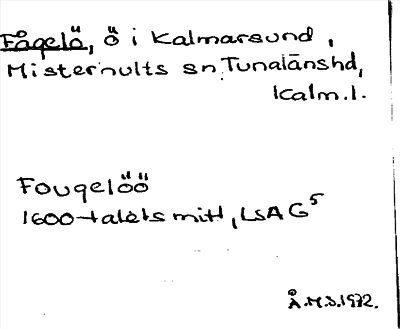 Fågelö, ö i Kalmarsund,
Misterhults sn, Tunalänshd,
Kalm.l.
Fougelöö
1600-talets mitt, LSA G5
Å.M.S.1972.